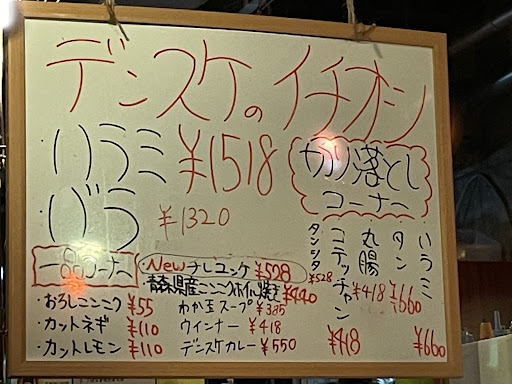 デンスケのイチオシ
ハラミ ¥1518
バラ ¥1320
切り落とし
コーナー
ハラミ ¥660
タン ¥660
丸腸 ¥418
コテッチャン ¥418
タンツタ ¥528
一品コーナー
・おろしニンニク ¥55
・カットネギ ¥110
・カットレモン ¥110
・New チレユッケ ¥528
・青森県産ニンニクホイル焼き ¥440
わか玉スープ ¥385
ウインナー ¥418
デンスケカレー ¥550